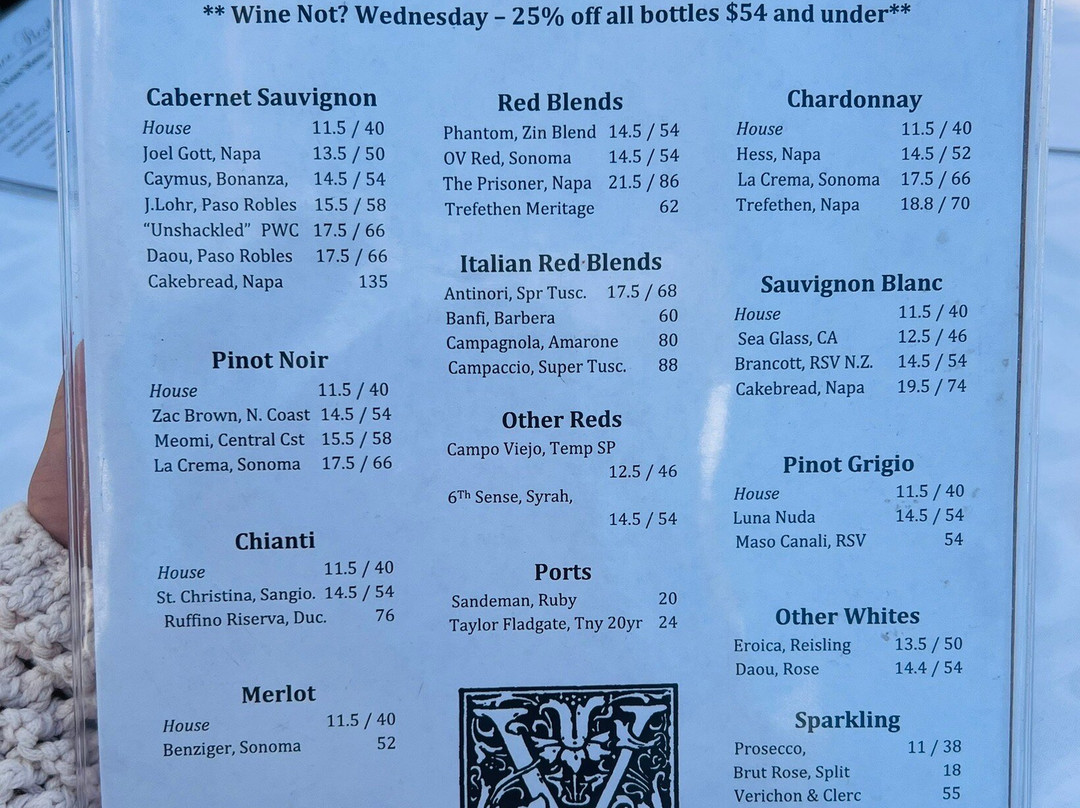 ** Wine Not? Wednesday – 25% off all bottles $54 and under**
Cabernet Sauvignon
House 11.5 / 40
Joel Gott, Napa 13.5 / 50
Caymus, Bonanza, 14.5 / 54
J.Lohr, Paso Robles 15.5 / 58
“Unshackled” PWC 17.5 / 66
Daou, Paso Robles 17.5 / 66
Cakebread, Napa 135
Pinot Noir
House 11.5 / 40
Zac Brown, N. Coast 14.5 / 54
Meomi, Central Cst 15.5 / 58
La Crema, Sonoma 17.5 / 66
Chianti
House 11.5 / 40
St. Christina, Sangio. 14.5 / 54
Ruffino Riserva, Duc. 76
Merlot
House 11.5 / 40
Benziger, Sonoma 52
Red Blends
Phantom, Zin Blend 14.5 / 54
OV Red, Sonoma 14.5 / 54
The Prisoner, Napa 21.5 / 86
Trefethen Meritage 62
Italian Red Blends
Antinori, Spr Tusc. 17.5 / 68
Banfi, Barbera 60
Campagnola, Amarone 80
Campaccio, Super Tusc. 88
Other Reds
Campo Viejo, Temp SP
12.5 / 46
6Th Sense, Syrah,
14.5 / 54
Ports
Sandeman, Ruby 20
Taylor Fladgate, Tny 20yr 24
Chardonnay
House 11.5 / 40
Hess, Napa 14.5 / 52
La Crema, Sonoma 17.5 / 66
Trefethen, Napa 18.8 / 70
Sauvignon Blanc
House 11.5 / 40
Sea Glass, CA 12.5 / 46
Brancott, RSV N.Z. 14.5 / 54
Cakebread, Napa 19.5 / 74
Pinot Grigio
House 11.5 / 40
Luna Nuda 14.5 / 54
Maso Canali, RSV 54
Other Whites
Eroica, Reisling 13.5 / 50
Daou, Rose 14.4 / 54
Sparkling
Prosecco, 11 / 38
Brut Rose, Split 18
Verichon & Clerc 55